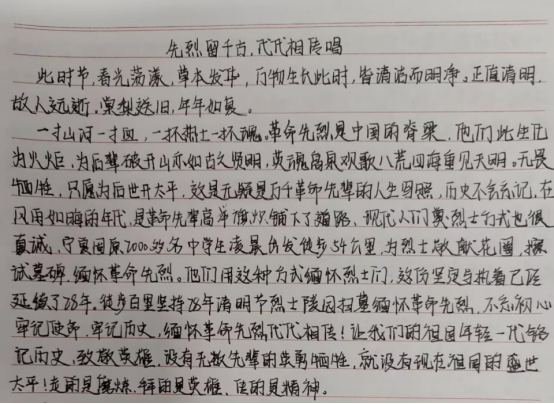 先烈留千古,代代相传唱
此时节,春光荡漾,草木发芽,万物生长此时,皆清洁而明净。正值清明,
故人远逝,案思送旧,年年如复。
一寸山河一寸血,一抔热土一抔魂。革命先烈是中国的脊梁,他们此生化
为火炬,为后辈破开山亦如古之贤明,英魂岛泉欢歌八荒四海重见天明。无畏
牺牲,只愿为后世开太平,这是无数是万千革命先辈的人生写照,历史不会忘记,在
风雨如晦的年代,是革命先辈高举旗炽铺下了道路,现代人们奠烈士方式也很
真诚,宁夏固原2000多名中学生凌晨出发徒步54公里,为烈士敬献花圈,擦
试墓碑,缅怀革命先烈。他们用这种方式缅怀烈士们,这份坚定与执着已经
延续了28年。徒步百里坚持28年清明节烈士陵园扫墓缅怀革命先烈,不忘初心
牢记使命,牢记历史,缅怀革命先烈代代相传!让我们的祖国年轻一代铭
记历史,致敬英雄,没有无数先辈的英勇牺牲,就没有现在祖国的盛世
太平!走的是磨炼,拜的是英雄,传的是精神。